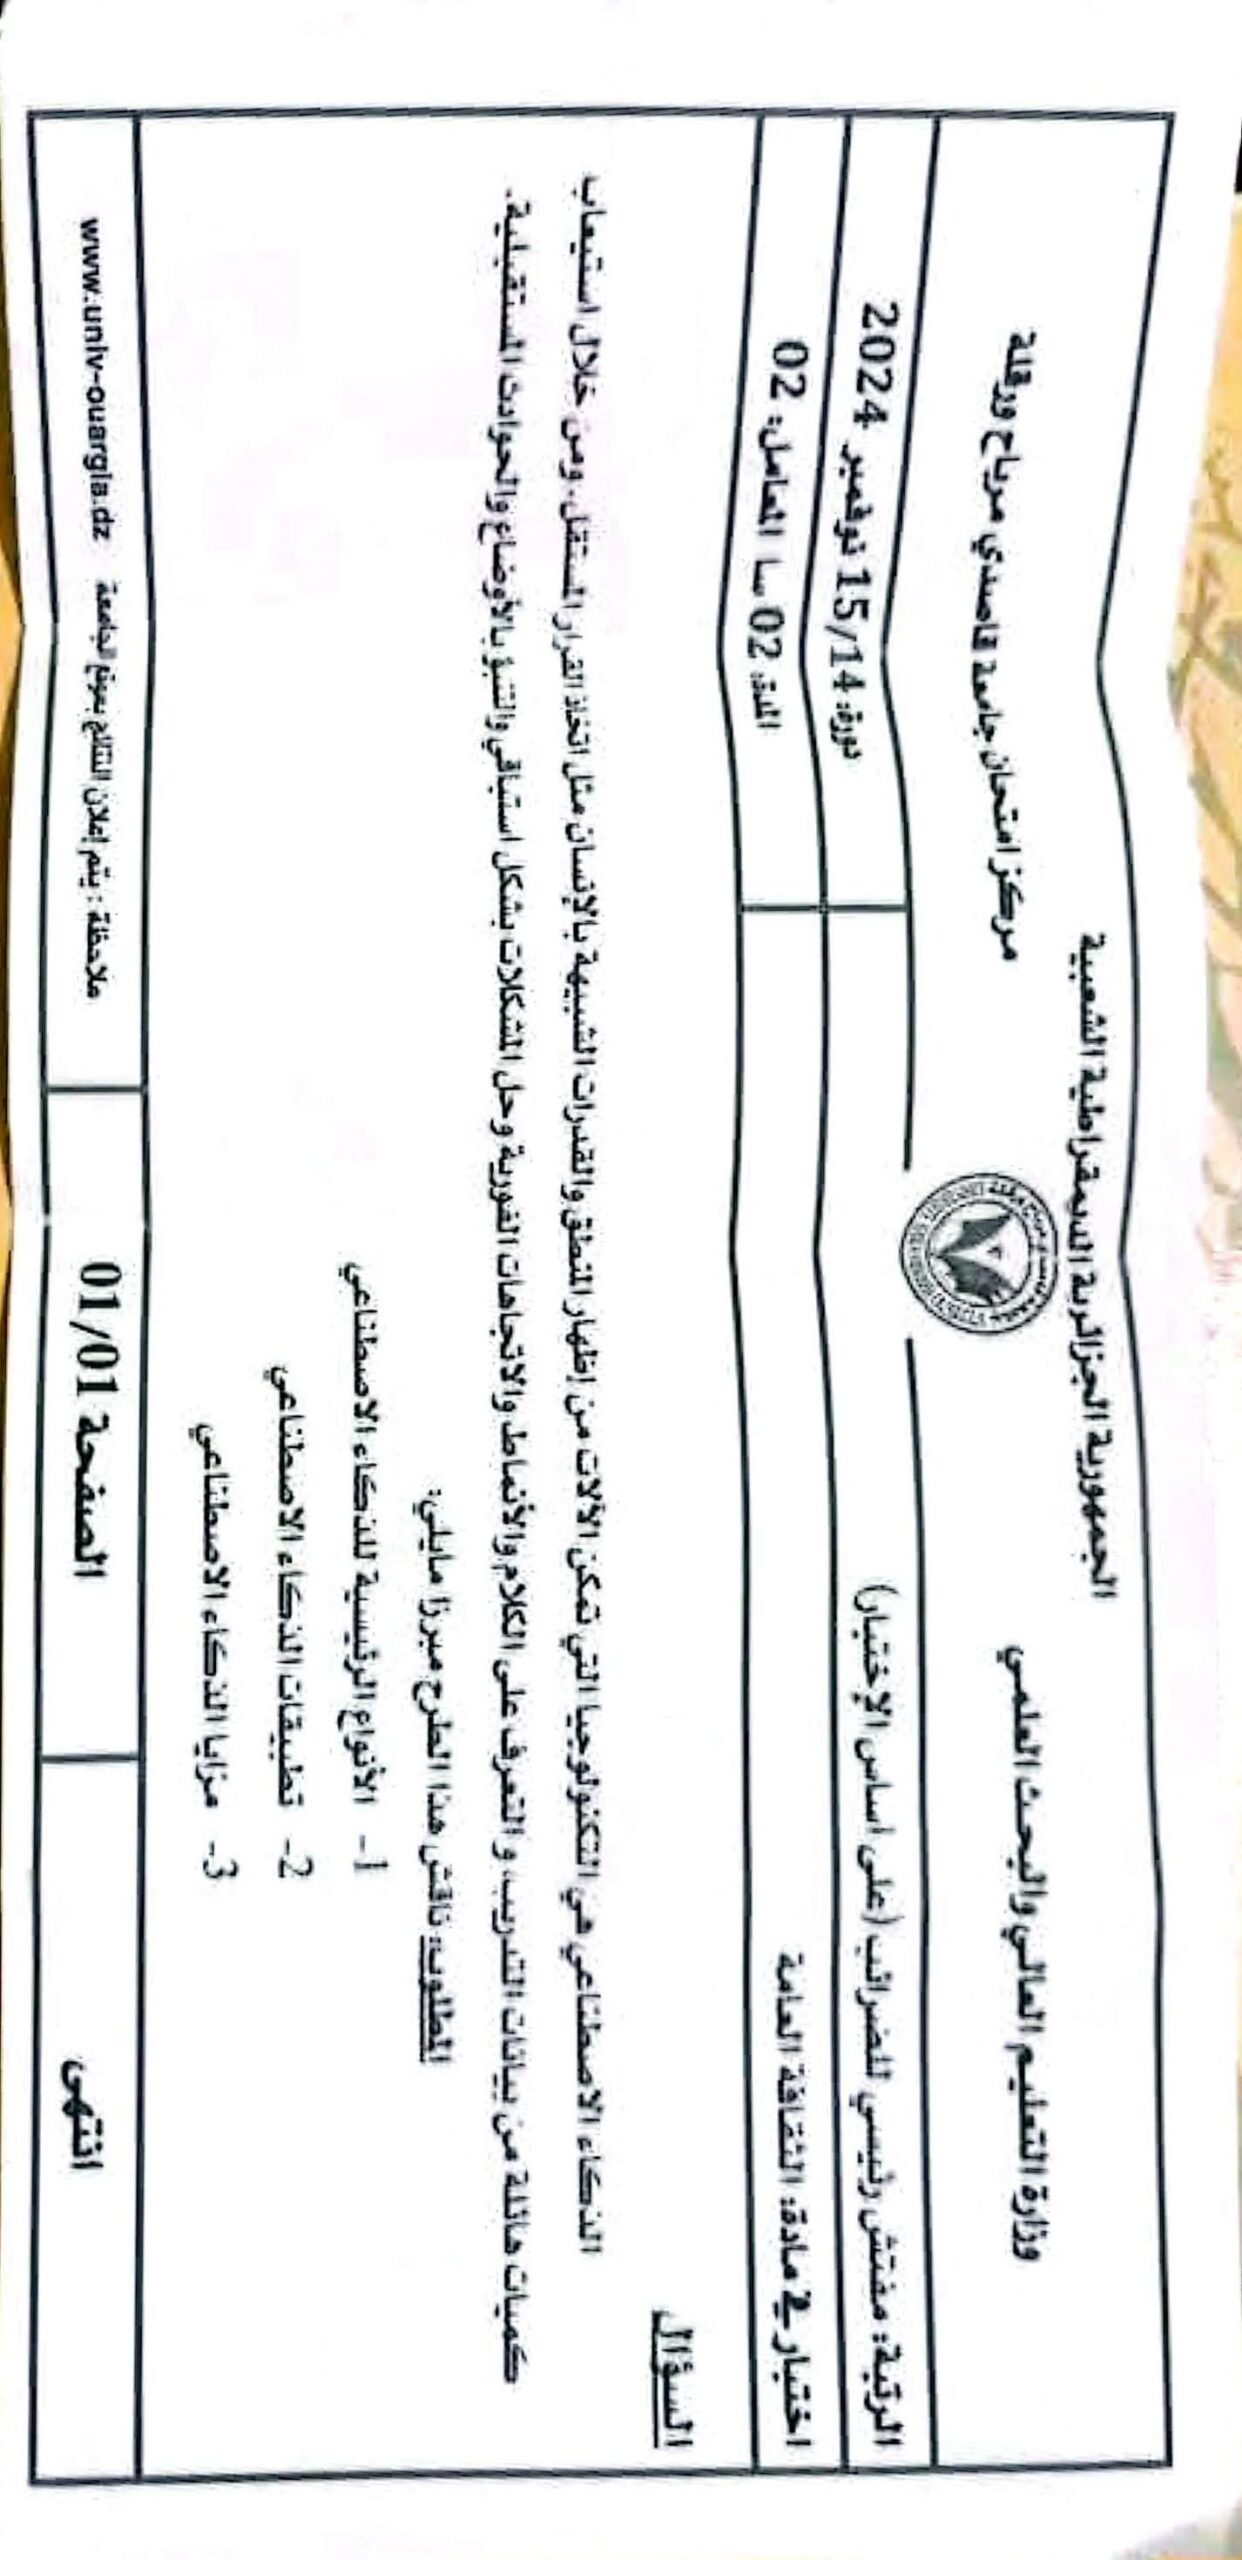 الجمهورية الجزائرية الديمقراطية الشعبية
وزارة التعليم العالي والبحث العلمي
مركز امتحان جامعة قاصدي مرباح ورقلة
الرتبة: مفتش رئيسي للضرائب (على اساس الإختبار)
دورة: 15/14 نوفمبر 2024
اختبار في مادة: الثقافة العامة
المدة: 02 سا المعامل: 02
السؤال
الذكاء الاصطناعي هي التكنولوجيا التي تمكن الآلات من إظهار المنطق والقدرات الشبيهة بالإنسان مثل اتخاذ القرار المستقل. ومن خلال استيعاب
كميات هائلة من بيانات التدريب، و التعرف على الكلام والأنماط والاتجاهات الفورية وحل المشكلات بشكل استباقي والتنبؤ بالأوضاع والحوادث المستقبلية.
المطلوب: ناقش هذا الطرح مبرزا مايلي:
1- الأنواع الرئيسية للذكاء الاصطناعي
2- تطبيقات الذكاء الاصطناعي
3- مزايا الذكاء الاصطناعي
انتهى
الصفحة 01/01
ملاحظة : يتم إعلان النتائج بموقع الجامعة www.univ-ouargla.dz